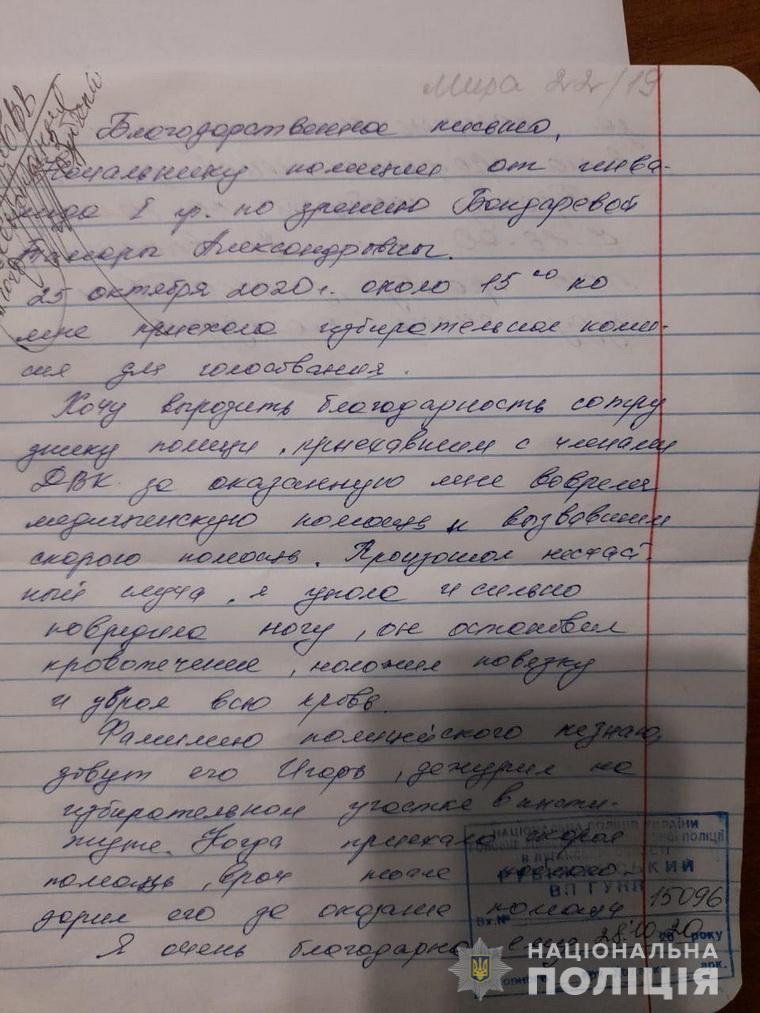 Мира 22/19
Благодарственное письмо,
Начальнику полиции от инва-
лида I гр. по зрению Бондаревой
Тамары Александровны.
25 октября 2020 г. около 15 00 ко
мне приехала избирательная коми-
сия для голосвания.
Хочу выразить благодарность сотру
днику полиции, приехавшим с членами
ДВК за оказанную мне вовремя
медицинскую помощь и вызвавшим
скорою помощь. Произошол несчаст
ный случа, я упала и сильно
повредила ногу, он остановил
кровотечение, наложил повязку
и убрал всю кровь.
Фамилию полицейского незнаю,
зовут его Игорь, дежурил на
избирательном участке в инсти-
туте. Когда приехала скорая
помощь, врач тоже
дарил его за оказание помощи
Я очень благодарна ему
НАЦІОНАЛЬНА ПОЛІЦІЯ УКРАЇНИ
ВП ГУНП
Вх.№ 15096
28.10 2020 року
арк.
НАЦІОНАЛЬНА
ПОЛІЦІЯ